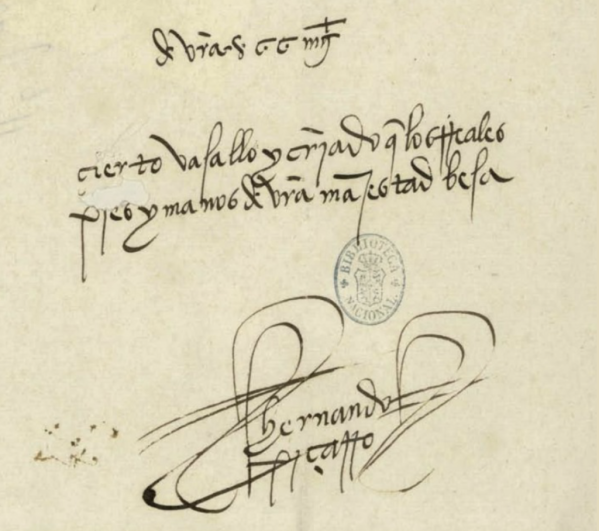 de vra s c c mgt
çierto vasallo y criado q los rreales
pies y manos de vra magestad besa
BIBLIOTECA NACIONAL
hernando
piçarro